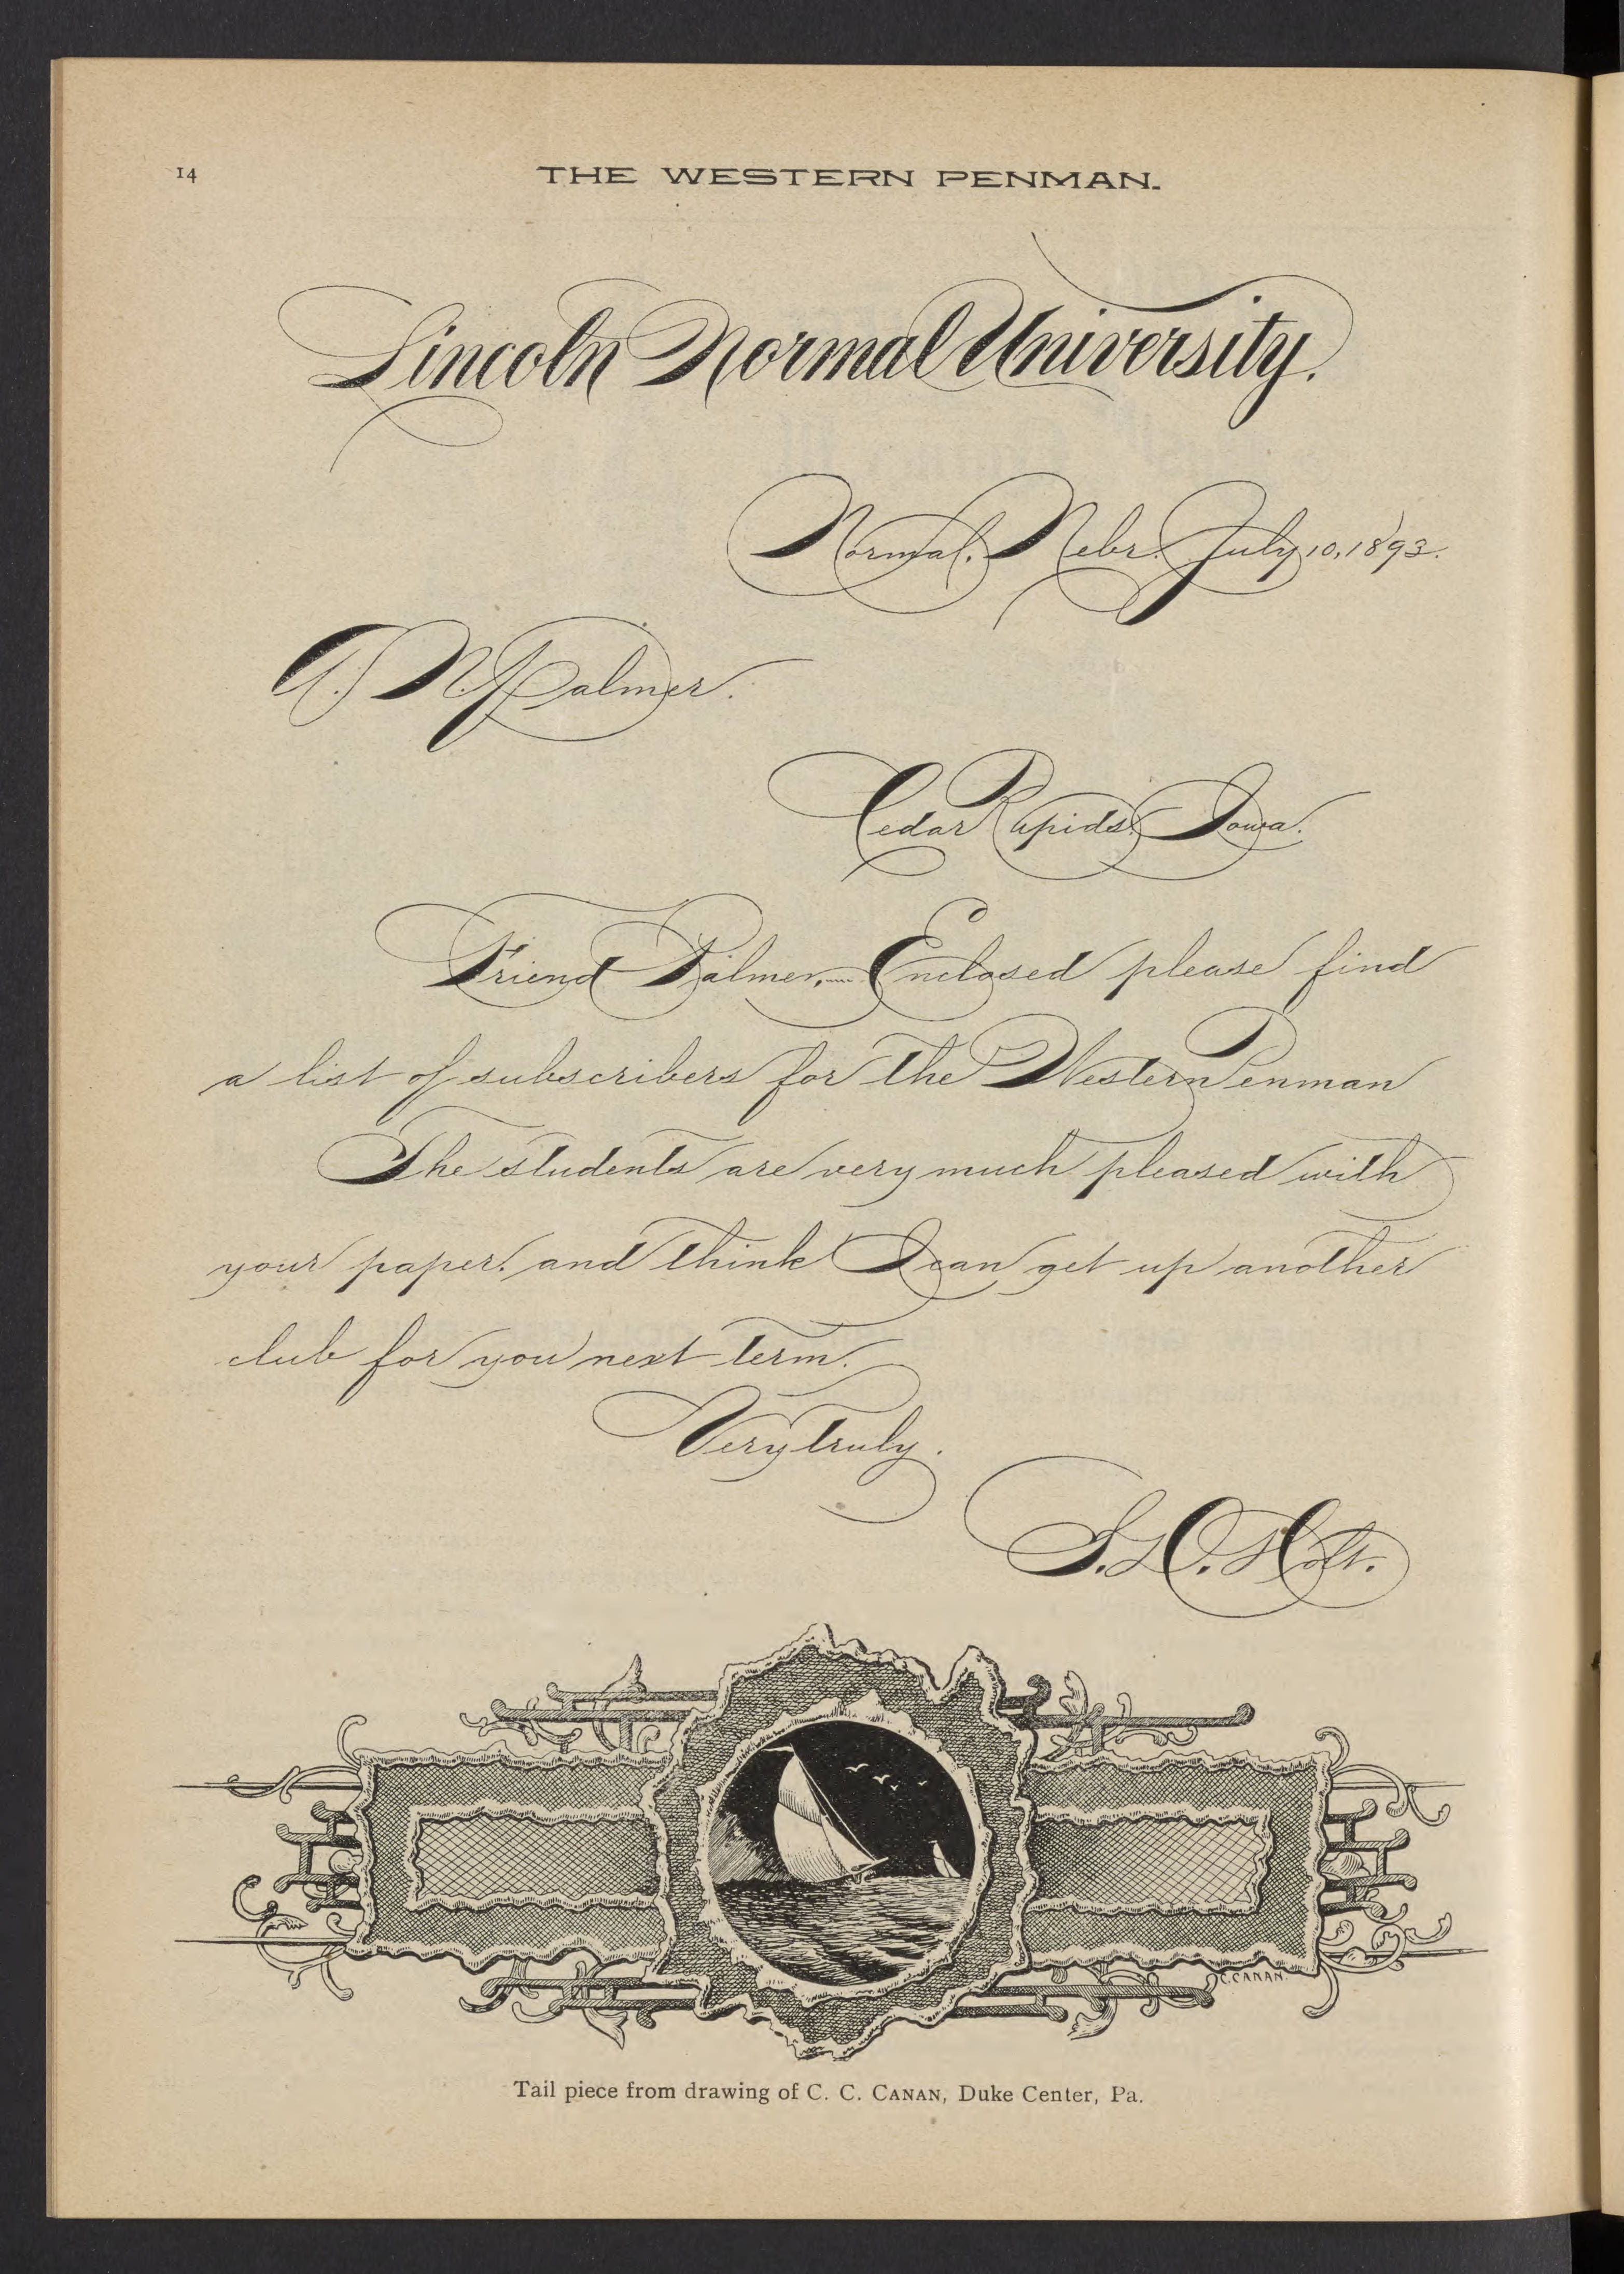 14
THE WESTERN PENMAN.
Lincoln Normal University.
Normal, Nebr. July 10, 1893.
A. N. Palmer.
Cedar Rapids, Iowa.
Friend Palmer,— Enclosed please find
a list of subscribers for the Western Penman
The students are very much pleased with
your paper, and think I can get up another
club for you next term.
Very truly.
S. D. Holt.
C.C. CANAN.
Tail piece from drawing of C. C. CANAN, Duke Center, Pa.